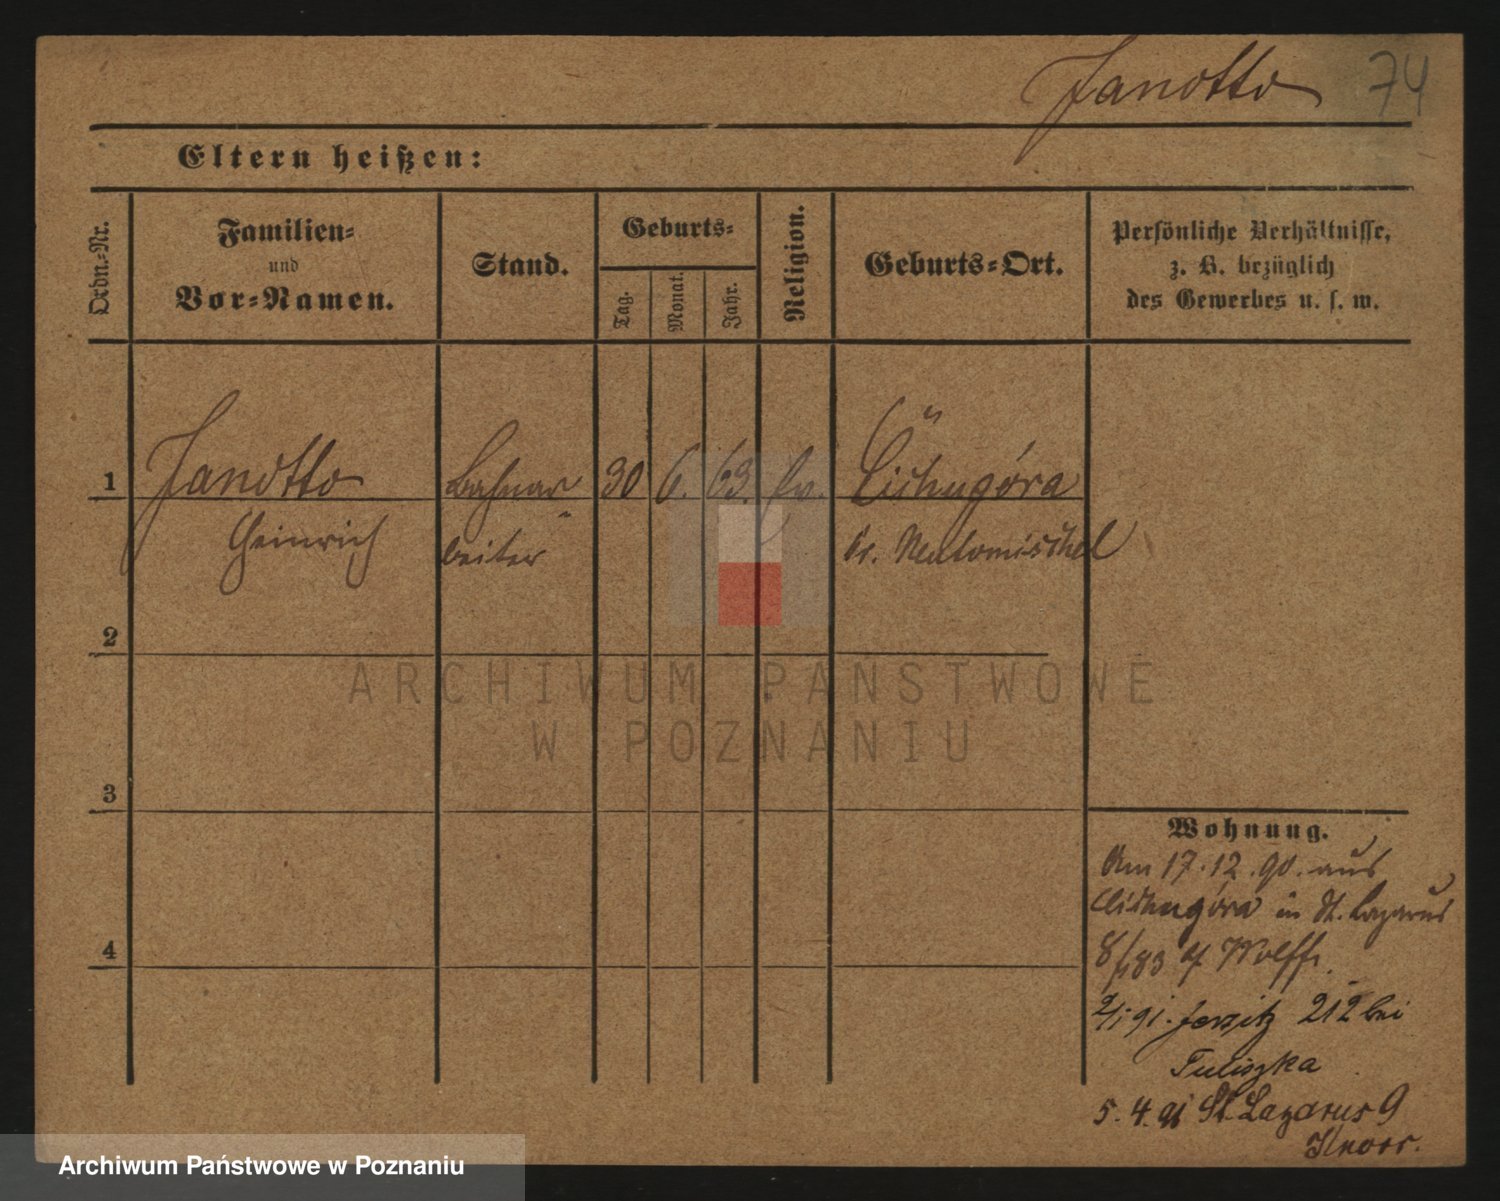 Janotto 74
Eltern heißen:
Ordn.-Nr.
Familien-
und
Vor-Namen.
Stand.
Geburts-
Tag.
Monat.
Jahr.
Religion.
Geburts-Ort.
Persönliche Verhältnisse,
z. B. bezüglich
des Gewerbes u. s. w.
1 Janotto Bahnar 30 6. 63. Ev.
Heinrich beiter Kr. Neutomischel
2
3
4
Wohnung.
Am 17.12.90. aus
in St. Lazarus
Wolff.
2/1 91. Jerzitz 212 bei
Tuliszka
5.4.91 St. Lazarus 9
Knorr.
ARCHIWUM PAŃSTWOWE
W POZNANIU
Archiwum Państwowe w Poznaniu